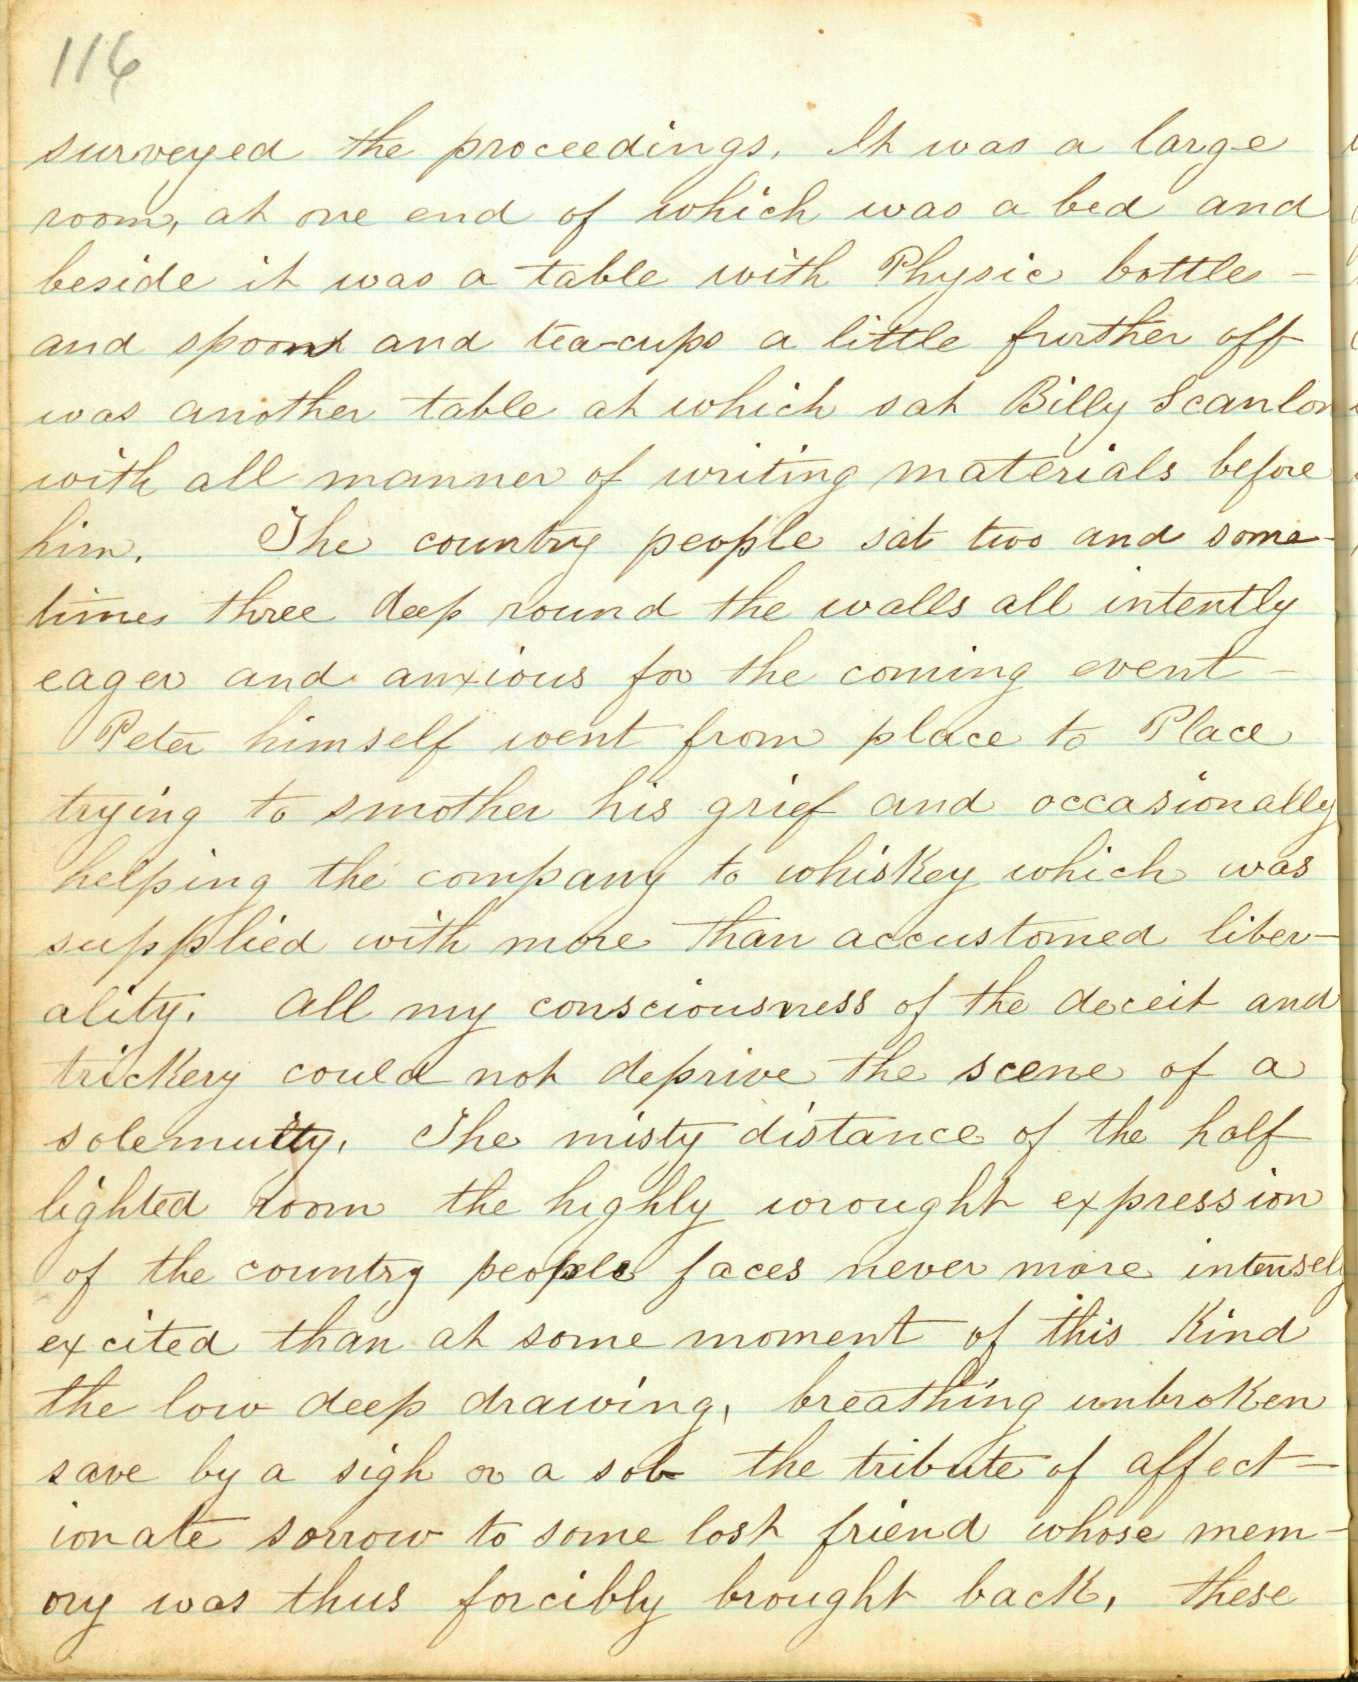 116
surveyed the proceedings. It was a large
room, at one end of which was a bed and
beside it was a table with Physic bottles –
and spoons and tea-cups a little further off
was another table at which sat Billy Scanlon
with all manner of writing materials before
him. The country people sat two and some-
times three deep round the walls all intently
eager and anxious for the coming event –
Peter himself went from place to Place
trying to smother his grief and occasionally
helping the company to whiskey which was
supplied with more than accustomed liber-
ality. All my consciousness of the deceit and
trickery could not deprive the scene of a
solemnity. The misty distance of the half
lighted room the highly wrought expression
of the country people faces never more intensely
excited than at some moment of this Kind
the low deep drawing, breathing unbroken
save by a sigh or a sob the tribute of affect-
ionate sorrow to some lost friend whose mem-
ory was thus forcibly brought back, these